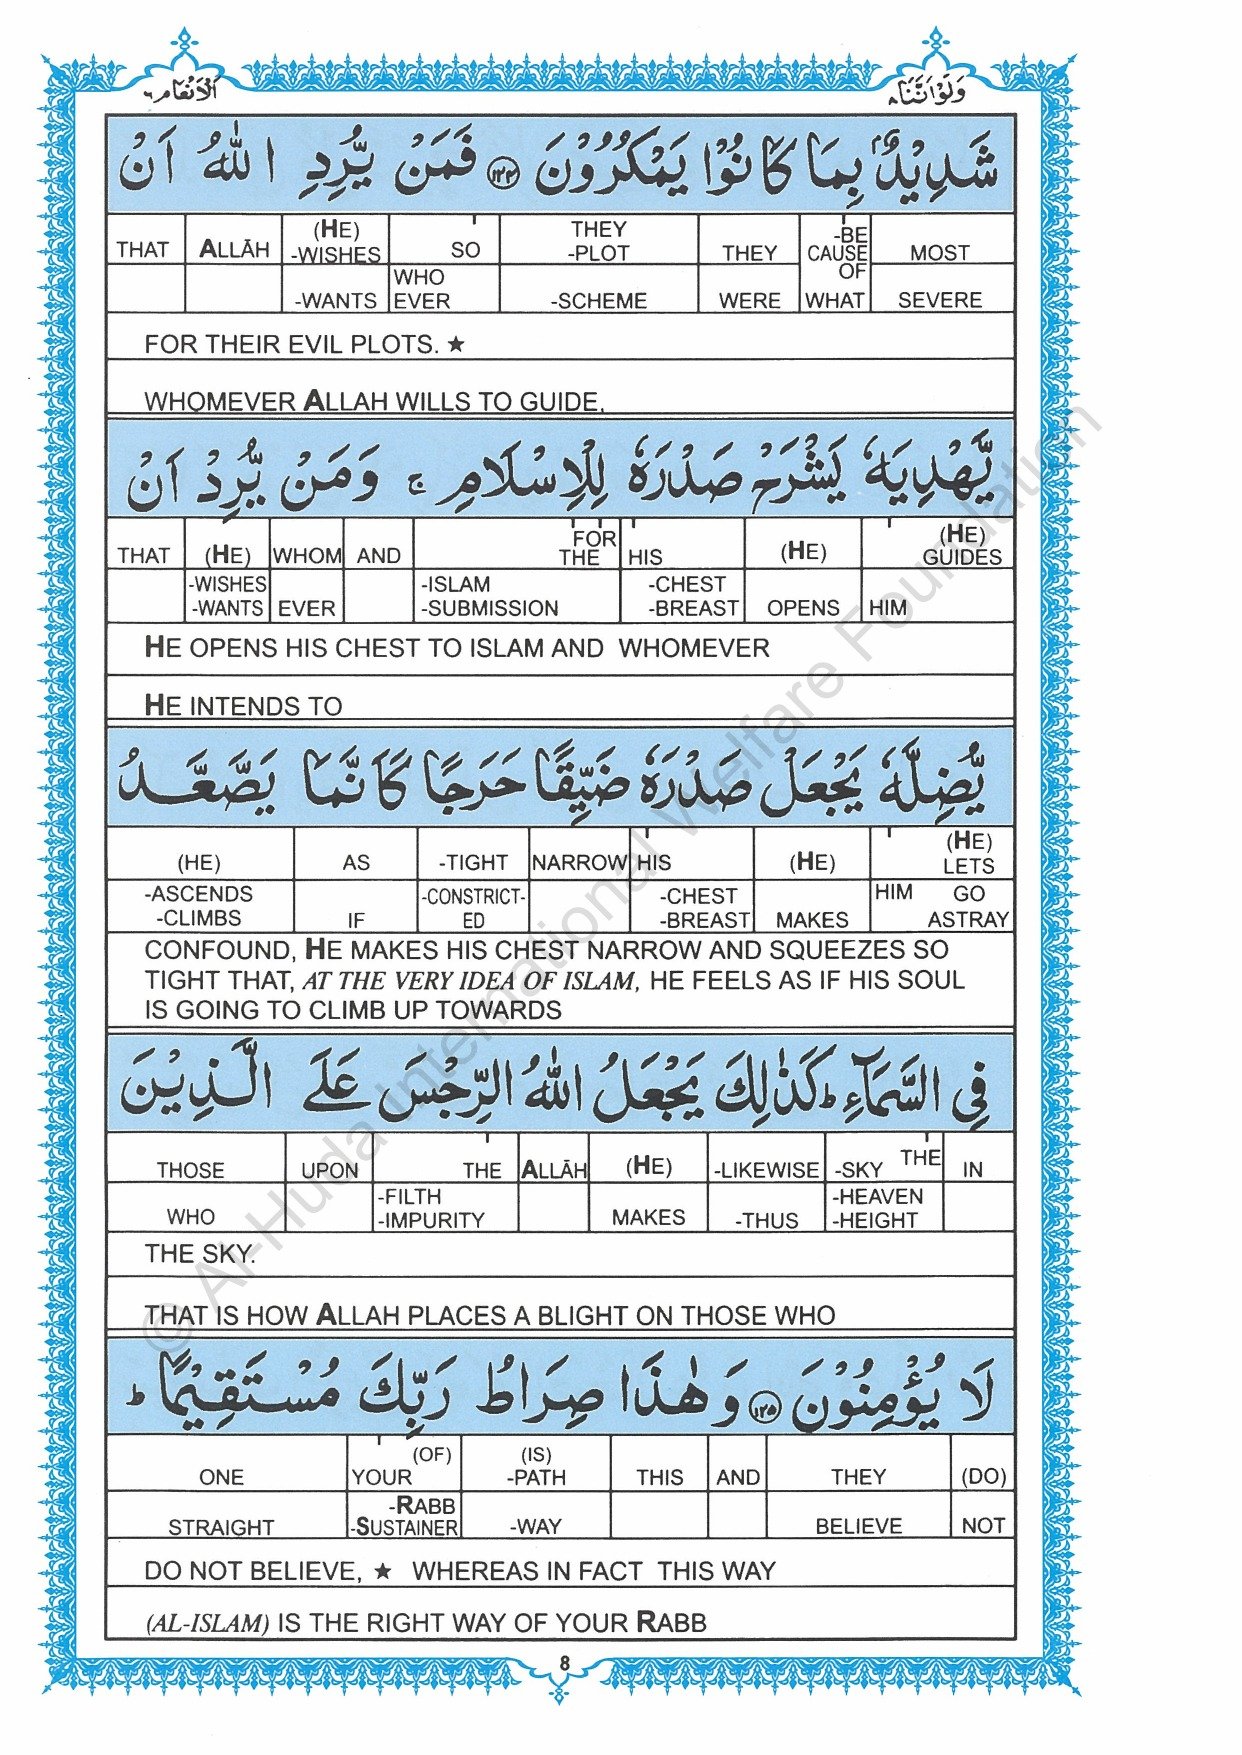 الانعام ٦
ولواننا ٨
شَدِيْدٌۢ بِمَا كَانُوْا يَمْكُرُوْنَ ۝۱۲۴ فَمَنْ يُّرِدِ اللّٰهُ اَنْ
THAT ALLĀH (HE) -WISHES SO THEY -PLOT THEY -BE CAUSE OF MOST
-WANTS WHO EVER -SCHEME WERE WHAT SEVERE
FOR THEIR EVIL PLOTS. ★
WHOMEVER ALLAH WILLS TO GUIDE,
يَّهْدِيَهٗ يَشْرَحْ صَدْرَهٗ لِلْاِسْلَامِ ۚ وَمَنْ يُّرِدْ اَنْ
THAT (HE) WHOM AND FOR THE HIS (HE) (HE) GUIDES
-WISHES -WANTS EVER -ISLAM -SUBMISSION -CHEST -BREAST OPENS HIM
HE OPENS HIS CHEST TO ISLAM AND WHOMEVER
HE INTENDS TO
يُّضِلَّهٗ يَجْعَلْ صَدْرَهٗ ضَيِّقًا حَرَجًا كَاَنَّمَا يَصَّعَّدُ
(HE) AS -TIGHT NARROW HIS (HE) (HE) LETS
-ASCENDS -CLIMBS IF -CONSTRICT-ED -CHEST -BREAST MAKES HIM GO ASTRAY
CONFOUND, HE MAKES HIS CHEST NARROW AND SQUEEZES SO
TIGHT THAT, AT THE VERY IDEA OF ISLAM, HE FEELS AS IF HIS SOUL
IS GOING TO CLIMB UP TOWARDS
فِي السَّمَآءِ ؕ كَذٰلِكَ يَجْعَلُ اللّٰهُ الرِّجْسَ عَلَى الَّذِيْنَ
THOSE UPON THE ALLĀH (HE) -LIKEWISE -SKY THE IN
WHO -FILTH -IMPURITY MAKES -THUS -HEAVEN -HEIGHT
THE SKY.
THAT IS HOW ALLAH PLACES A BLIGHT ON THOSE WHO
لَا يُؤْمِنُوْنَ ۝۱۲۵ وَهٰذَا صِرَاطُ رَبِّكَ مُسْتَقِيْمًا ؕ
ONE YOUR (OF) (IS) -PATH THIS AND THEY (DO)
STRAIGHT -RABB -SUSTAINER -WAY BELIEVE NOT
DO NOT BELIEVE, ★ WHEREAS IN FACT THIS WAY
(AL-ISLAM) IS THE RIGHT WAY OF YOUR RABB
8
© Al-Huda International Welfare Foundation